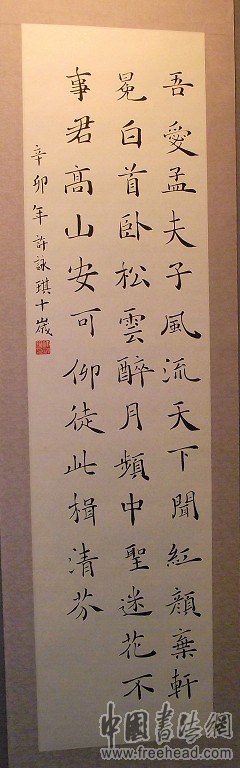 吾愛孟夫子風流天下聞紅顏棄軒
冕白首臥松雲醉月頻中聖迷花不
事君高山安可仰徒此楫清芬
辛卯年許詠琪十歲
中國書法網
www.freehead.com